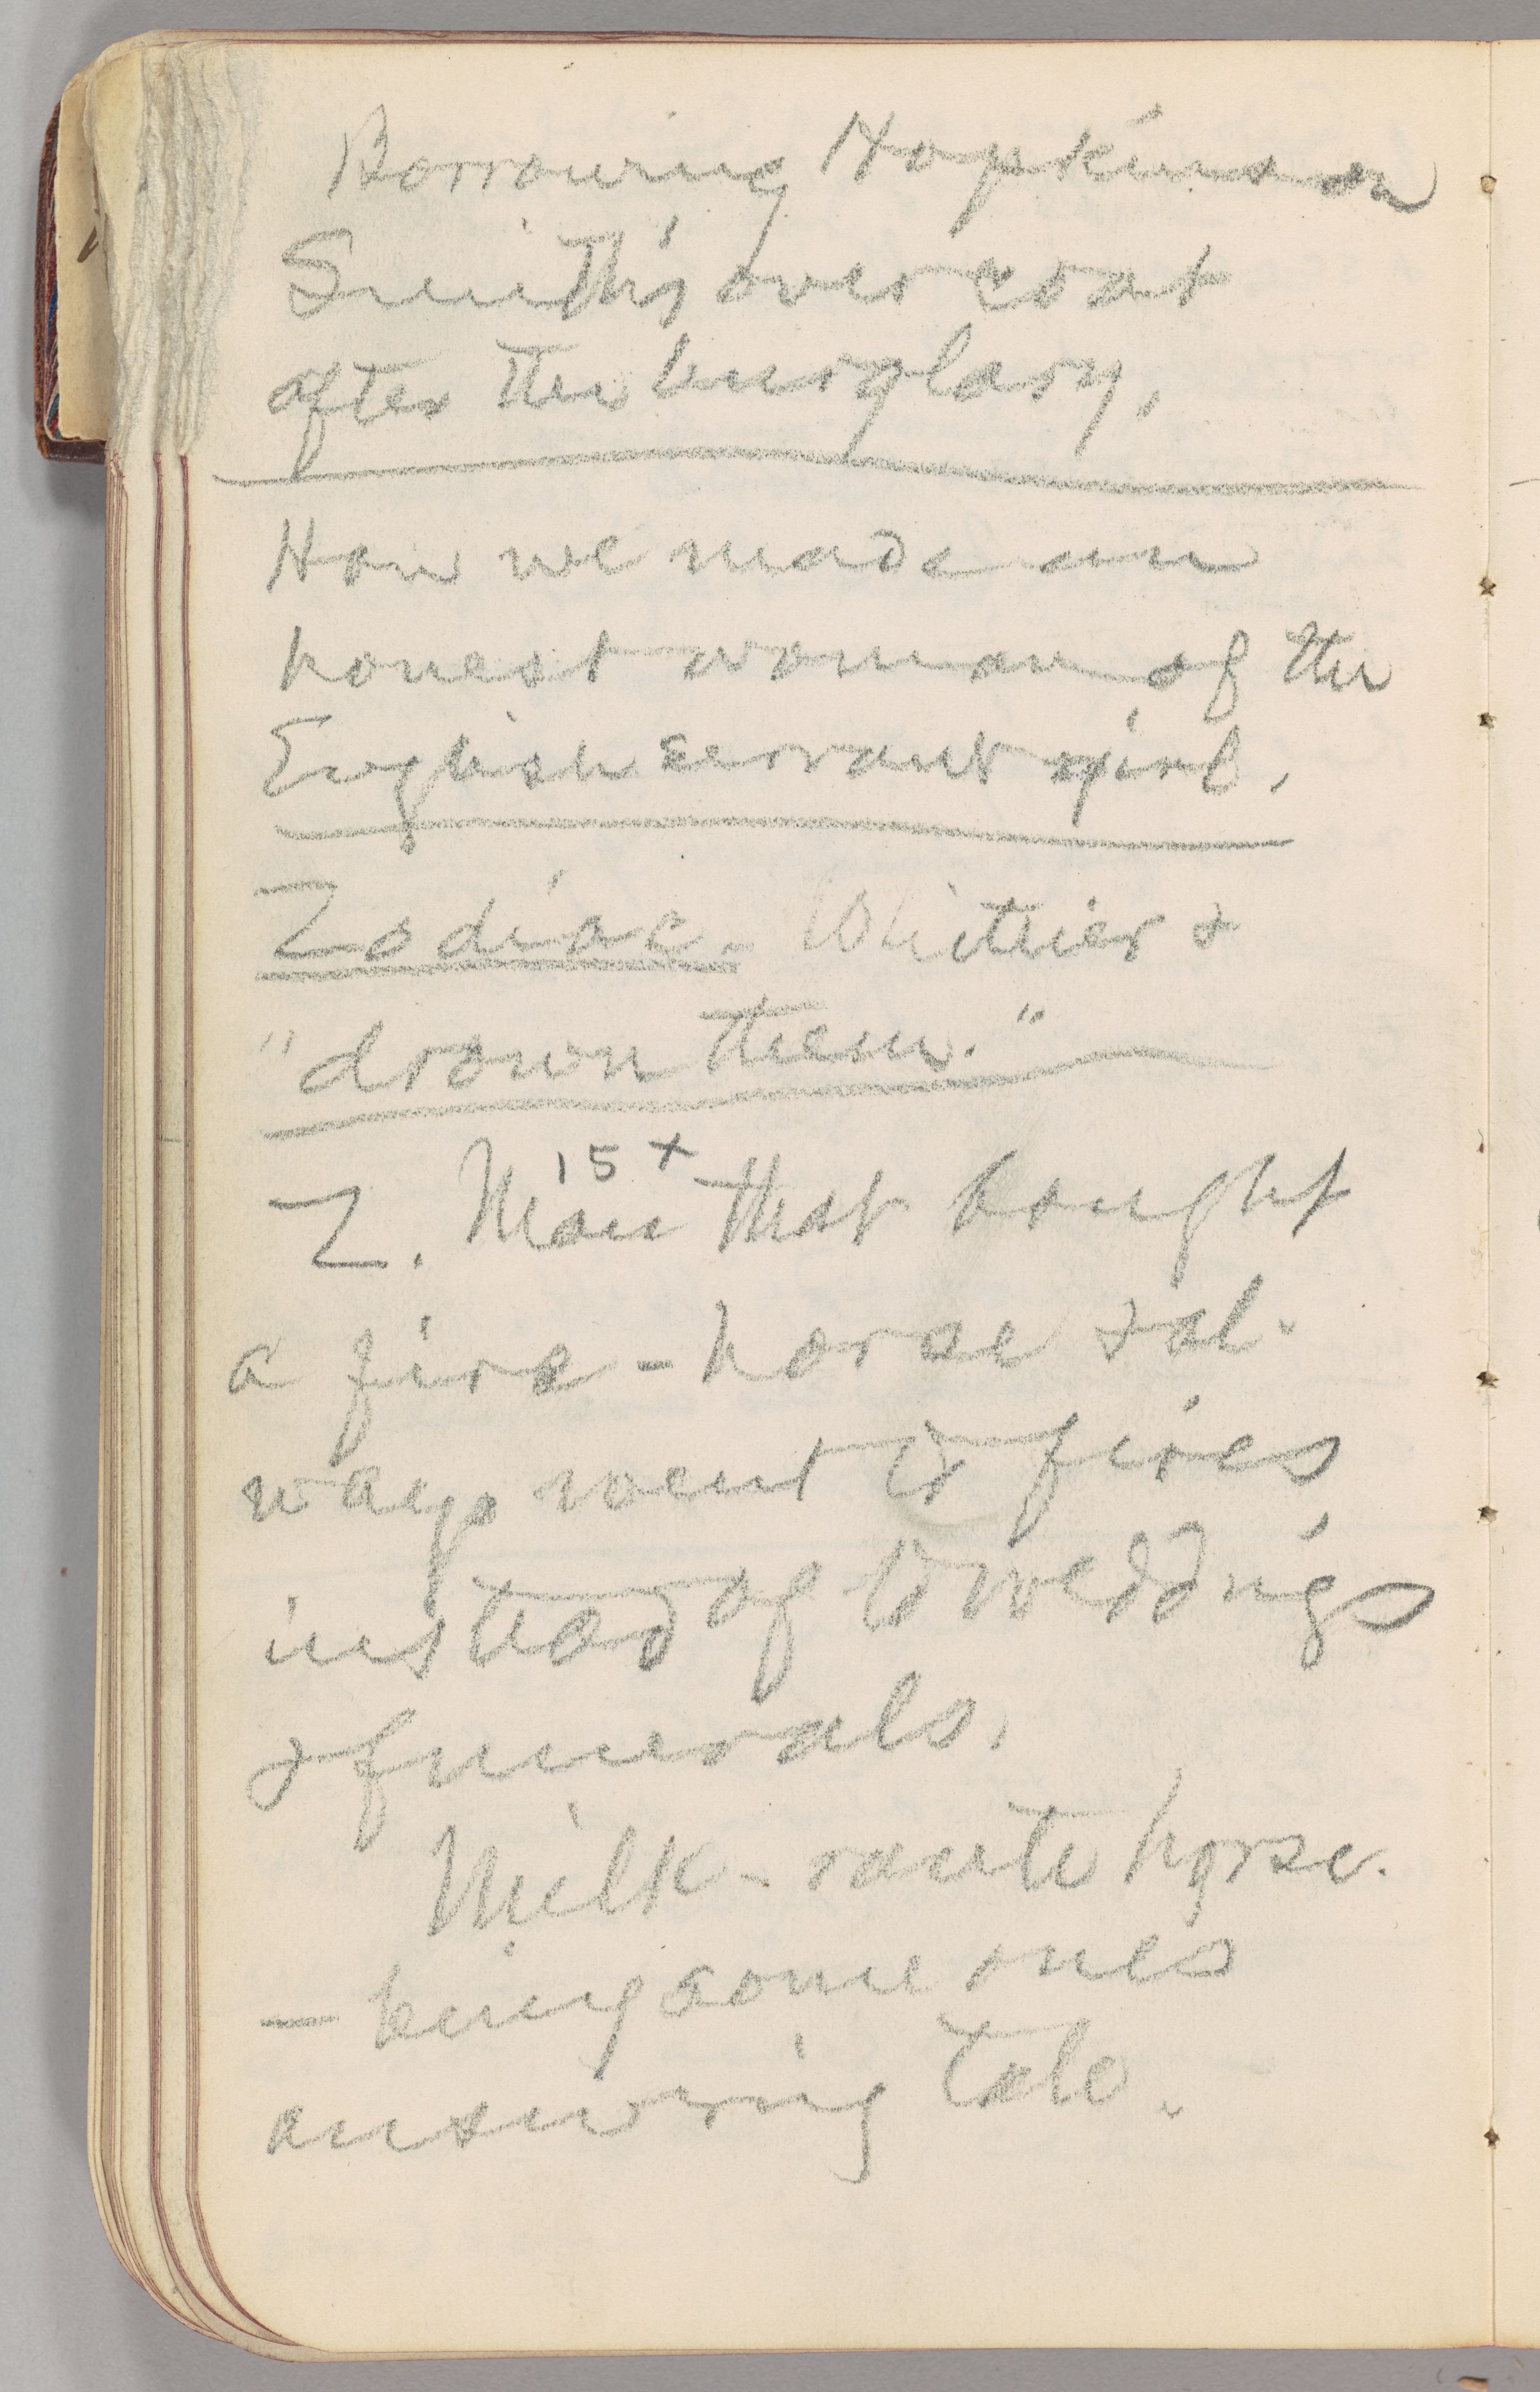 Borrowing Hopkinson
Smith's overcoat
after the burglary.
How we made an
honest woman of the
English servant girl.
Zodiac. Whittier &
"drown them."
15 +
Z. Man that bought
a fire-horse & al-
ways went to fires
instead of to weddings
& funerals.
Milk-route horse.
— being some one's
answering tale.